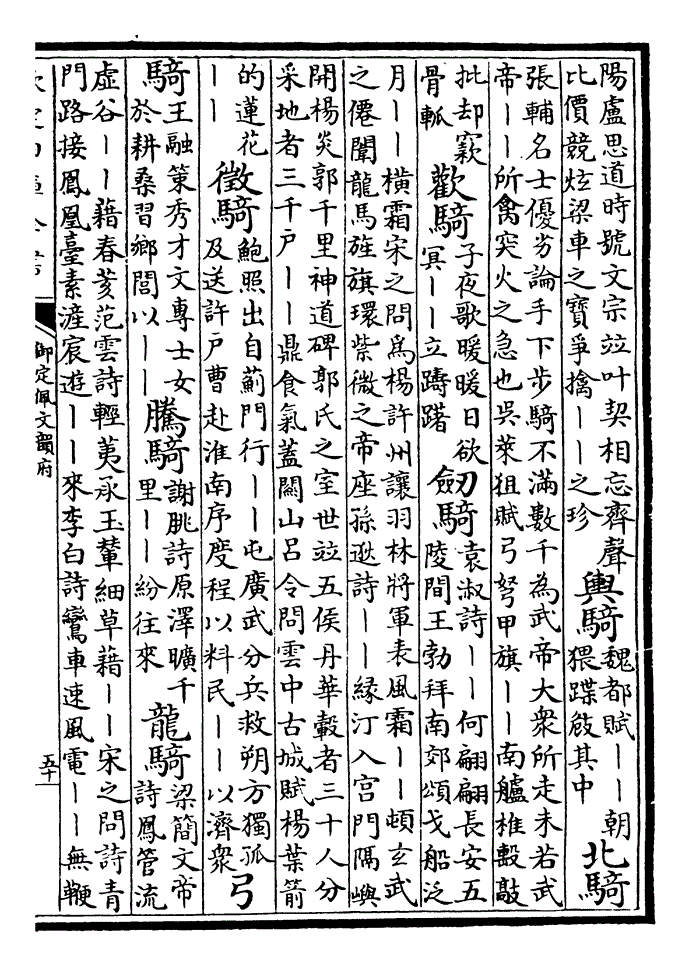 陽盧思道時號文宗竝叶契相忘齊聲
比價競炫梁車之寶爭擒｜｜之珍
輿騎
魏都賦｜｜朝
猥蹀㪇其中
北騎
張輔名士優劣論手下步騎不滿數千為武帝大衆所走未若武
帝｜｜所禽突火之急也吳萊狙賦弓弩甲旗｜｜南艫椎擊敲
批却窾
骨軱
歡騎
子夜歌暖暖日欲
冥｜｜立躊躇
劒騎
袁淑詩｜｜何翩翩長安五
陵間王勃拜南郊頌戈船泛
月｜｜橫霜宋之問爲楊許州讓羽林將軍表風霜｜｜頓玄武
之僊闈龍馬旌旗環紫微之帝座孫逖詩｜｜緣汀入宫門隔嶼
開楊炎郭千里神道碑郭氏之室世竝五侯丹華轂者三十人分
采地者三千戶｜｜鼎食氣蓋關山呂令問雲中古城賦楊葉箭
的蓮花
｜｜
徵騎
鮑照出自薊門行｜｜屯廣武分兵救朔方獨孤
及送許戶曹赴淮南序度程以料民｜｜以濟衆
弓
騎
王融策秀才文專士女
於耕桑習鄉閭以｜｜
騰騎
謝朓詩原澤曠千
里｜｜紛往來
龍騎
梁簡文帝
詩鳳管流
虛谷｜｜藉春荄范雲詩輕夷承玉輦細草藉｜｜宋之問詩青
門路接鳳凰臺素滻宸遊｜｜來李白詩鸞車速風電｜｜無鞭
欽定四庫全書
御定佩文韻府
五十